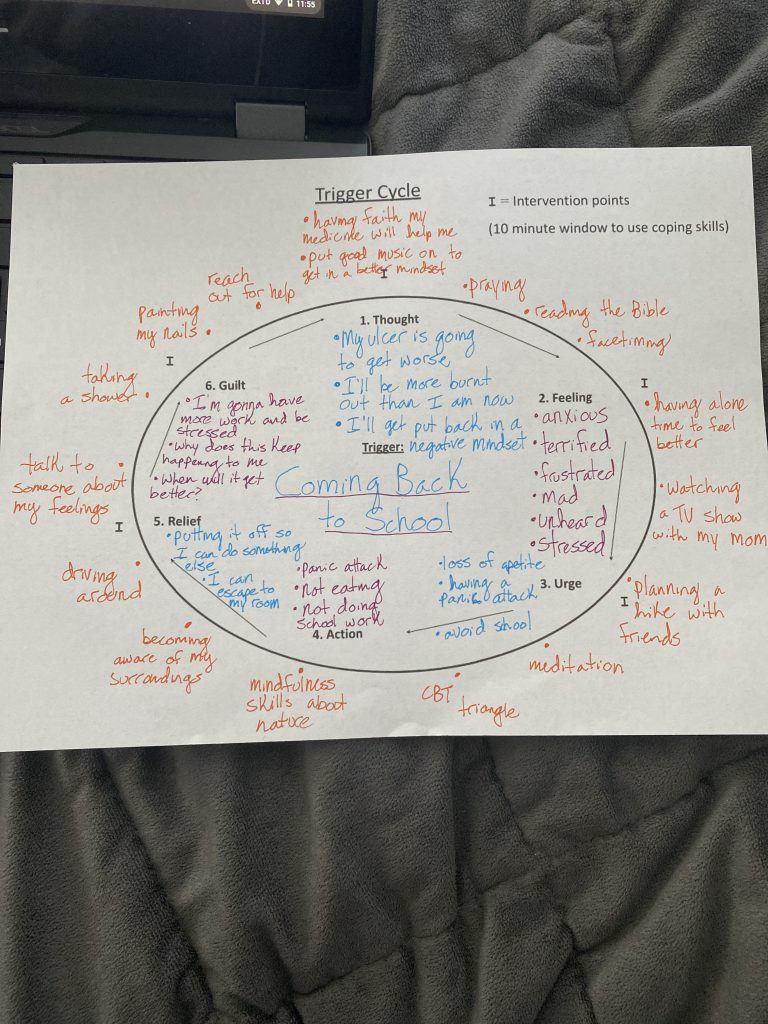 EXTD 11:55
Trigger Cycle
I = Intervention points
(10 minute window to use coping skills)
• having faith my
medicine will help me
• put good music on to
get in a better mindset
I
• praying
• reading the Bible
• facetiming
I
• having alone
time to feel
better
• watching
a TV show
with my mom
• planning a
hike with
friends
I
• meditation
• CBT
triangle
• mindfulness
skills about
nature
• becoming
aware of my
surrondings
• driving
around
I
talk to •
someone about
my feelings
taking
a shower •
I
painting
my nails •
reach
out for help •
1. Thought
• My ulcer is going
to get worse
• I'll be more burnt
out than I am now
• I'll get put back in a
negative mindset
2. Feeling
• anxious
• terrified
• frustrated
• mad
• unheard
• stressed
Trigger:
Coming Back
to School
3. Urge
• loss of apetite
• having a
panic attack
• avoid school
4. Action
• panic attack
• not eating
• not doing
school work
5. Relief
• putting it off so
I can do something
else
• I can
escape to
my room
6. Guilt
• I'm gonna have
more work and be
stressed
• why does this keep
happening to me
• When will it get
better?